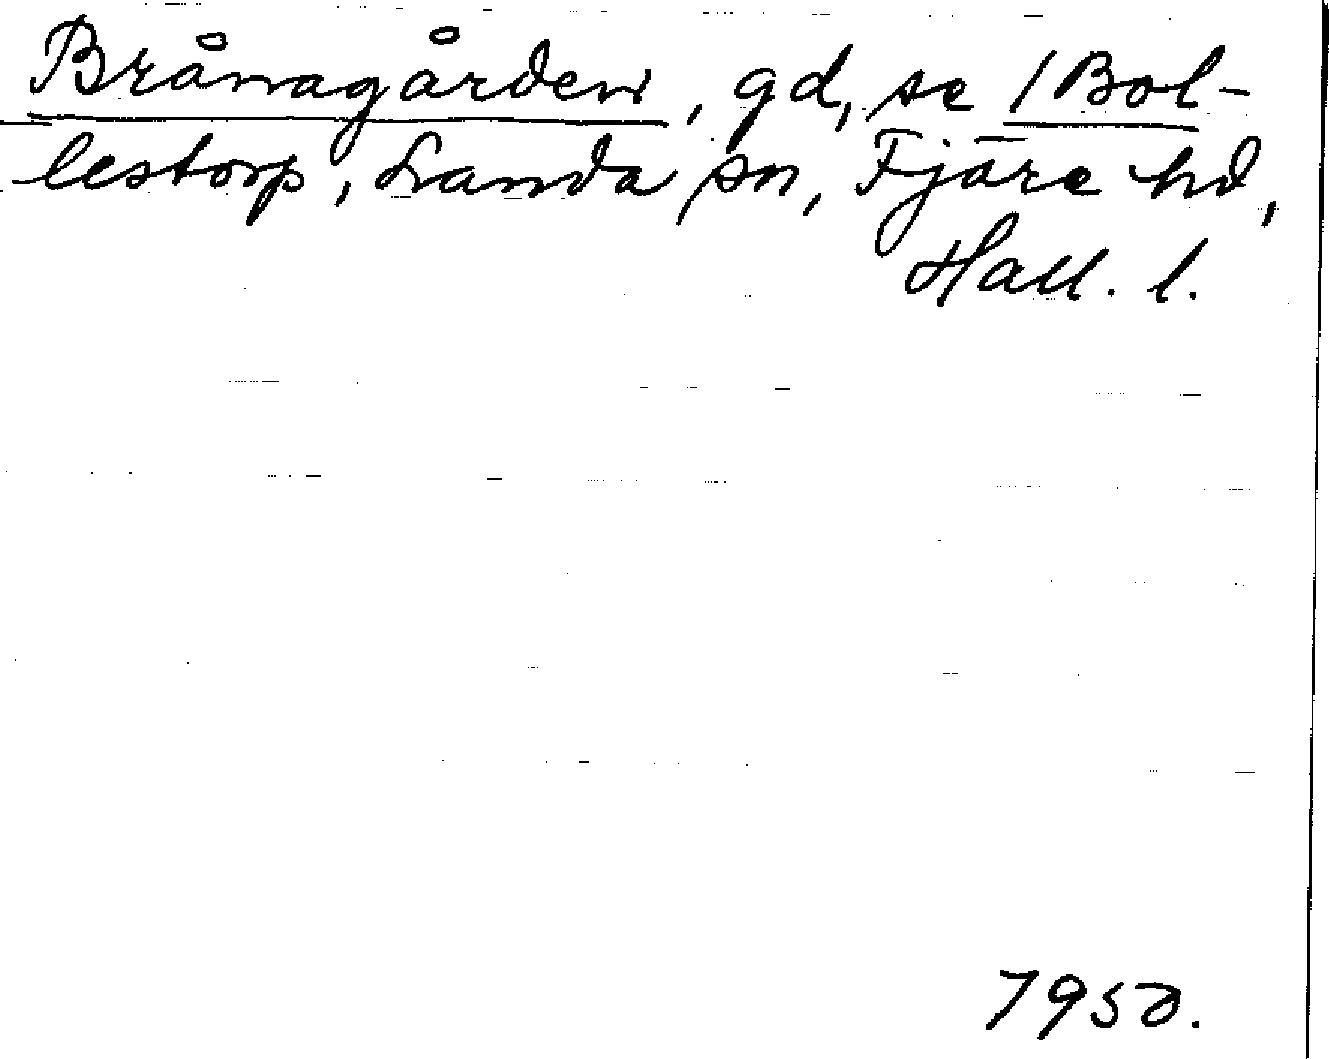 Brånagården, gd, se /Bol-
lestorp, Landa sn, Fjäre hd,
Hall. l.
1950.